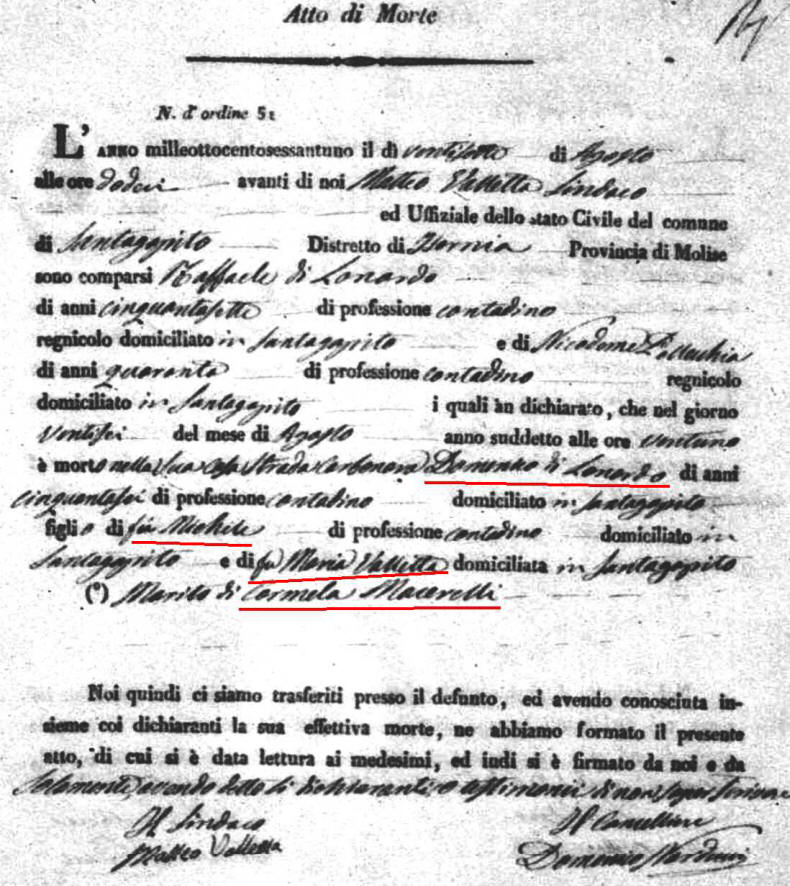 Atto di Morte
N. d'ordine 51
L'ANNO milleottocentosessantuno il dì ventisette di Agosto
alle ore dodeci avanti di noi Matteo Valletta Sindaco
ed Uffiziale dello stato Civile del comune
di Santagapito Distretto di Isernia Provincia di Molise
sono comparsi Raffaele di Lonardo
di anni cinquantasette di professione contadino
regnicolo domiciliato in Santagapito e di Nicodemo
di anni quaranta di professione contadino regnicolo
domiciliato in Santagapito i quali àn dichiarato, che nel giorno
Ventisei del mese di Agosto anno suddetto alle ore ventuno
è morto nella sua casa Strada Carbonara Domenico di Lonardo di anni
cinquantasei di professione contadino domiciliato in Santagapito
figlio di fu Michele di professione contadino domiciliato in
Santagapito e di fu Maria Valletta domiciliata in Santagapito
(*) Marito di Carmela Macerelli
Noi quindi ci siamo trasferiti presso il defunto, ed avendo conosciuta in-
sieme coi dichiaranti la sua effettiva morte, ne abbiamo formato il presente
atto, di cui si è data lettura ai medesimi, ed indi si è firmato da noi e da
Solamente, avendo detto li dichiaranti e testimonii di non saper scrivere
Il Sindaco Il Cancelliere
Matteo Valletta Domenico Narducci